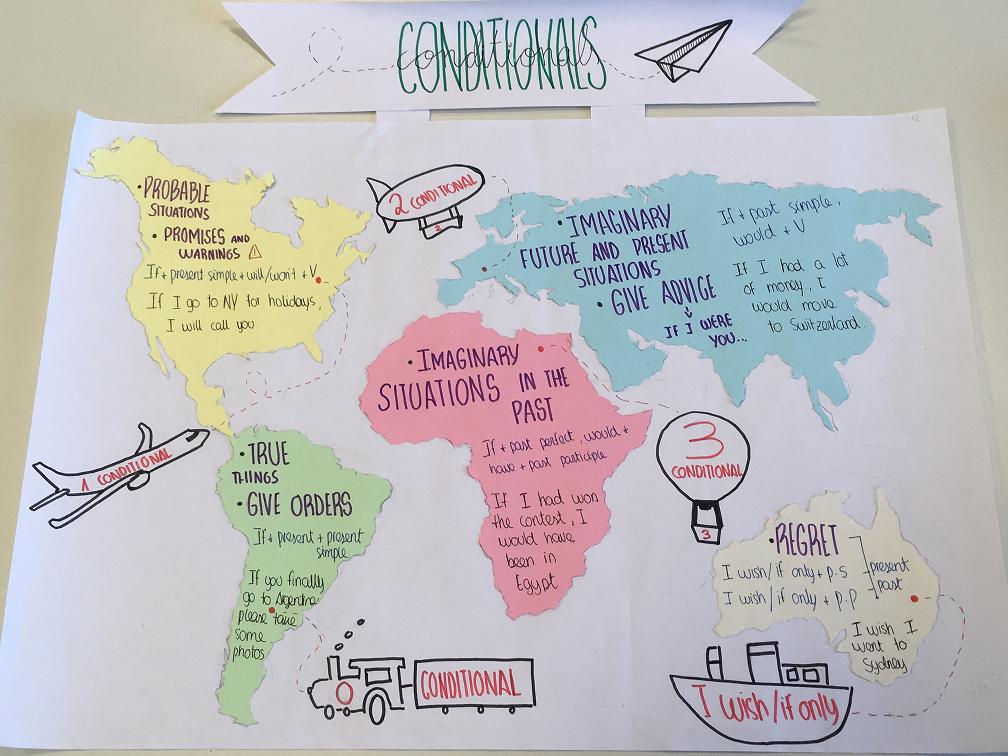 CONDITIONALS
conditionals
• PROBABLE
SITUATIONS
• PROMISES AND
WARNINGS ⚠
If + present simple + will/won't + V
If I go to NY for holidays,
I will call you.
2 CONDITIONAL
2
• IMAGINARY
FUTURE AND PRESENT
SITUATIONS
• GIVE ADVICE
↓
IF I WERE
YOU...
If + past simple,
would + V
If I had a lot
of money, I
would move
to Switzerland.
1 CONDITIONAL
• IMAGINARY
SITUATIONS IN THE
PAST
If + past perfect, would +
have + past participle
If I had won
the contest, I
would have
been in
Egypt
3
CONDITIONAL
3
• TRUE
THINGS
• GIVE ORDERS
If + present + present
simple
If you finally
go to Argentina
please take
some
photos
0 CONDITIONAL
• REGRET
I wish/if only + p.s
I wish/if only + p.p
present
past
I wish I
went to
Sydney
I wish/if only